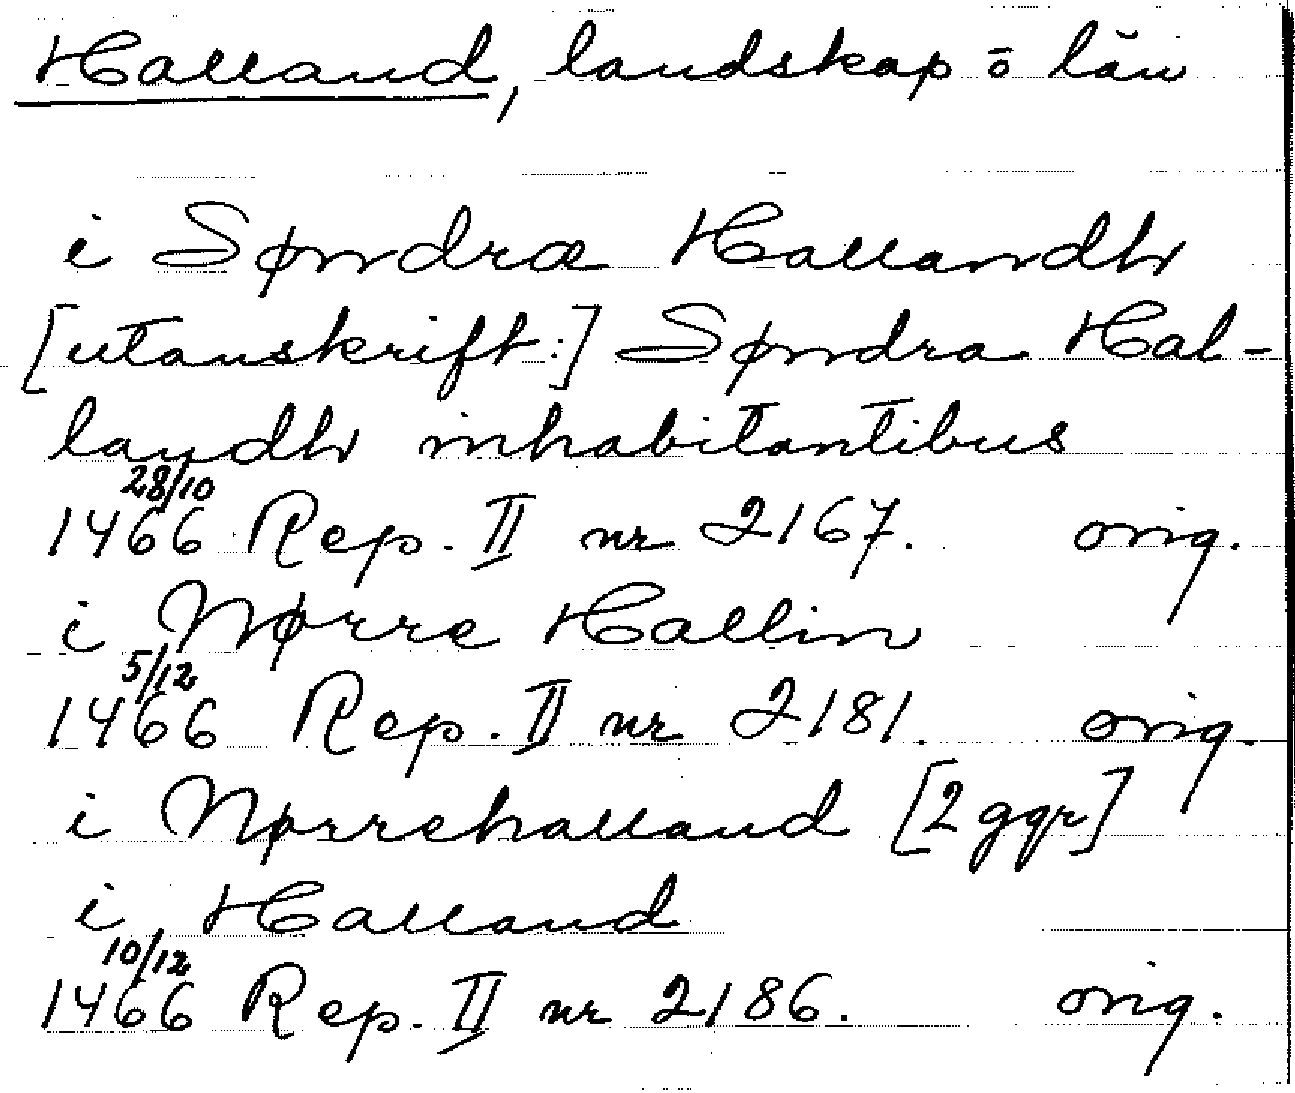 Halland, landskap o län
i Søndræ Hallandh
[utanskrift:] Søndra Hal-
landh inhabitantibus
28/10
1466 Rep. II nr 2167. orig.
i Nørre Hallin
5/12
1466 Rep. II nr 2181. orig.
i Nørrehalland [2 ggr]
i Halland
10/12
1466 Rep. II nr 2186. orig.